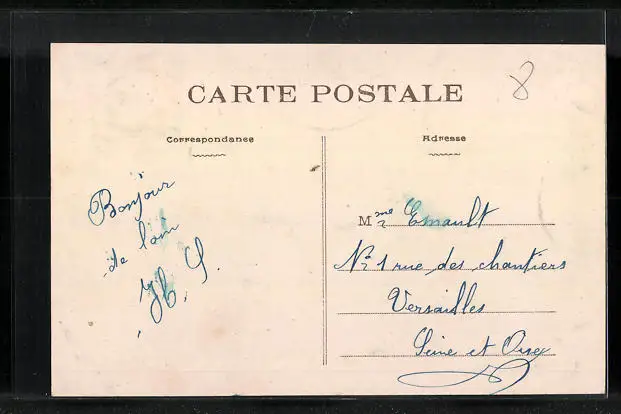 8
CARTE POSTALE
Correspondance
Adresse
Bonjour
de loin
Mme Esnault
No 1 rue des chantiers
Versailles
Seine et Oise